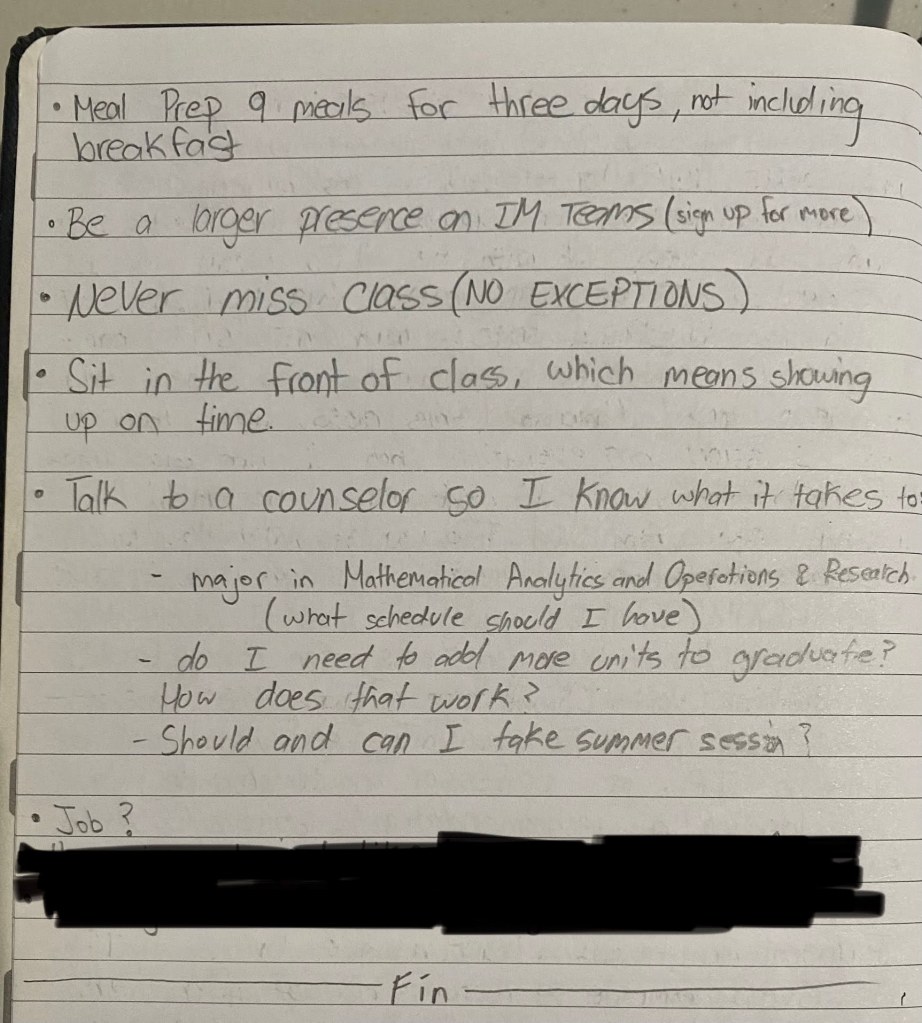 • Meal Prep 9 meals for three days, not including
breakfast
• Be a larger presence on IM Teams (sign up for more)
• Never miss class (NO EXCEPTIONS)
• Sit in the front of class, which means showing
up on time.
• Talk to a counselor so I know what it takes to:
- major in Mathematical Analytics and Operations & Research
(what schedule should I have)
- do I need to add more units to graduate?
How does that work?
- Should and can I take summer session?
• Job?
Fin